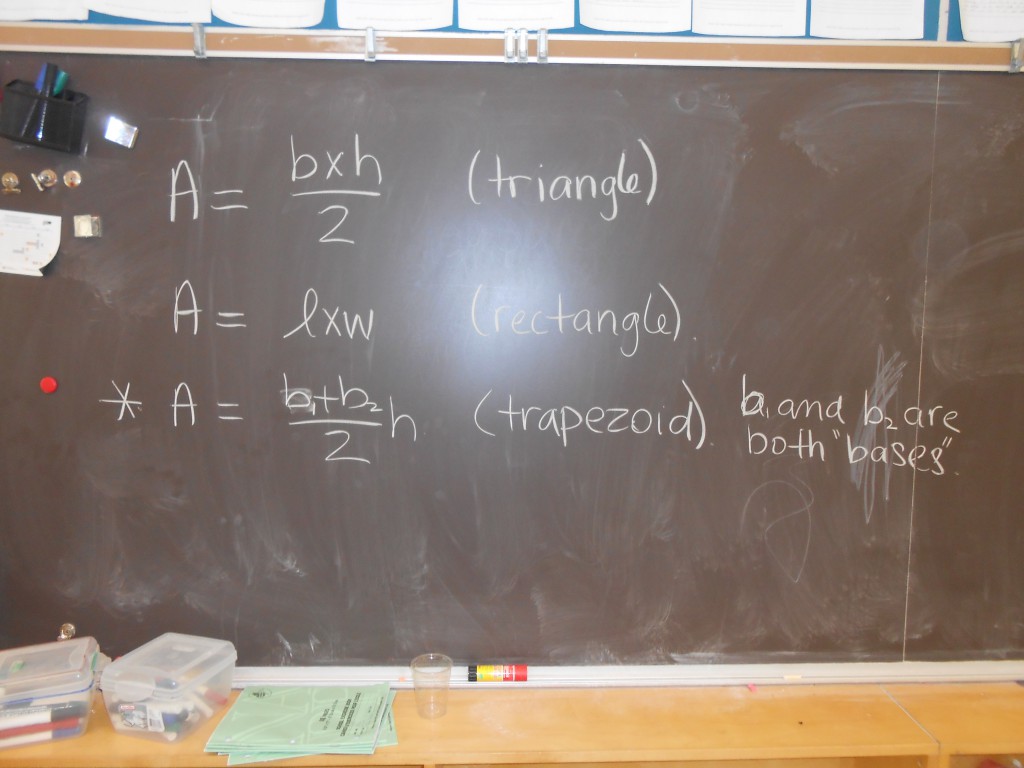 A = b x h / 2 (triangle)
A = l x w (rectangle).
* A = b1 + b2 / 2 h (trapezoid). b1 and b2 are
both "bases".